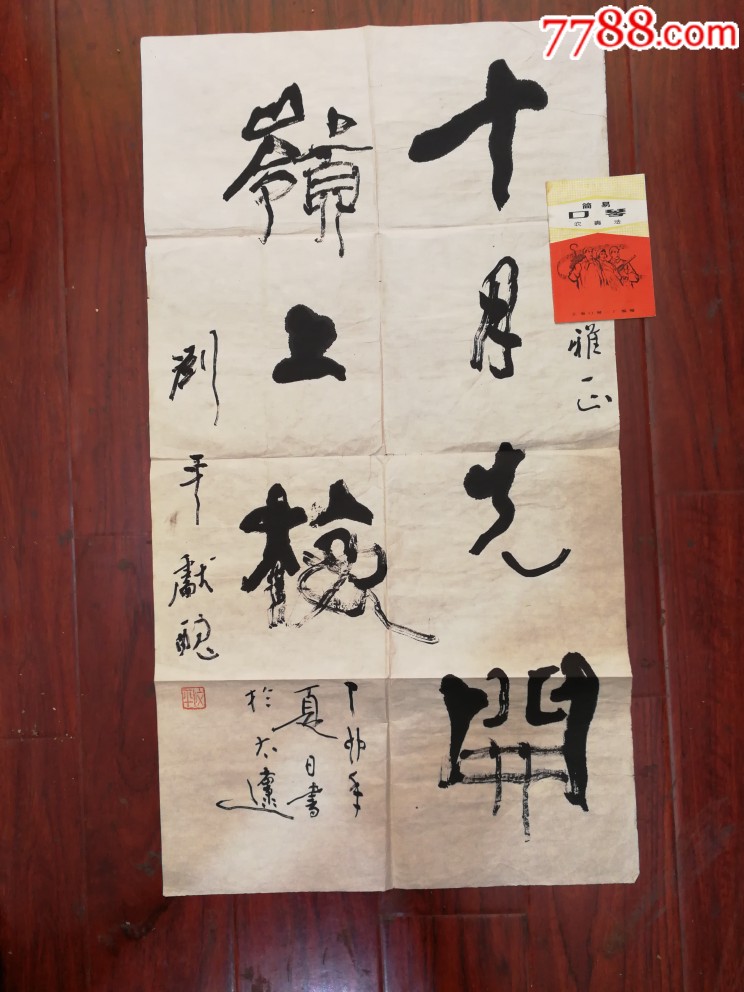 7788.com
十月先開
嶺上梅
雅正
丁卯年
夏日書
於大連
劉平獻醜
簡易
口琴
吹奏法